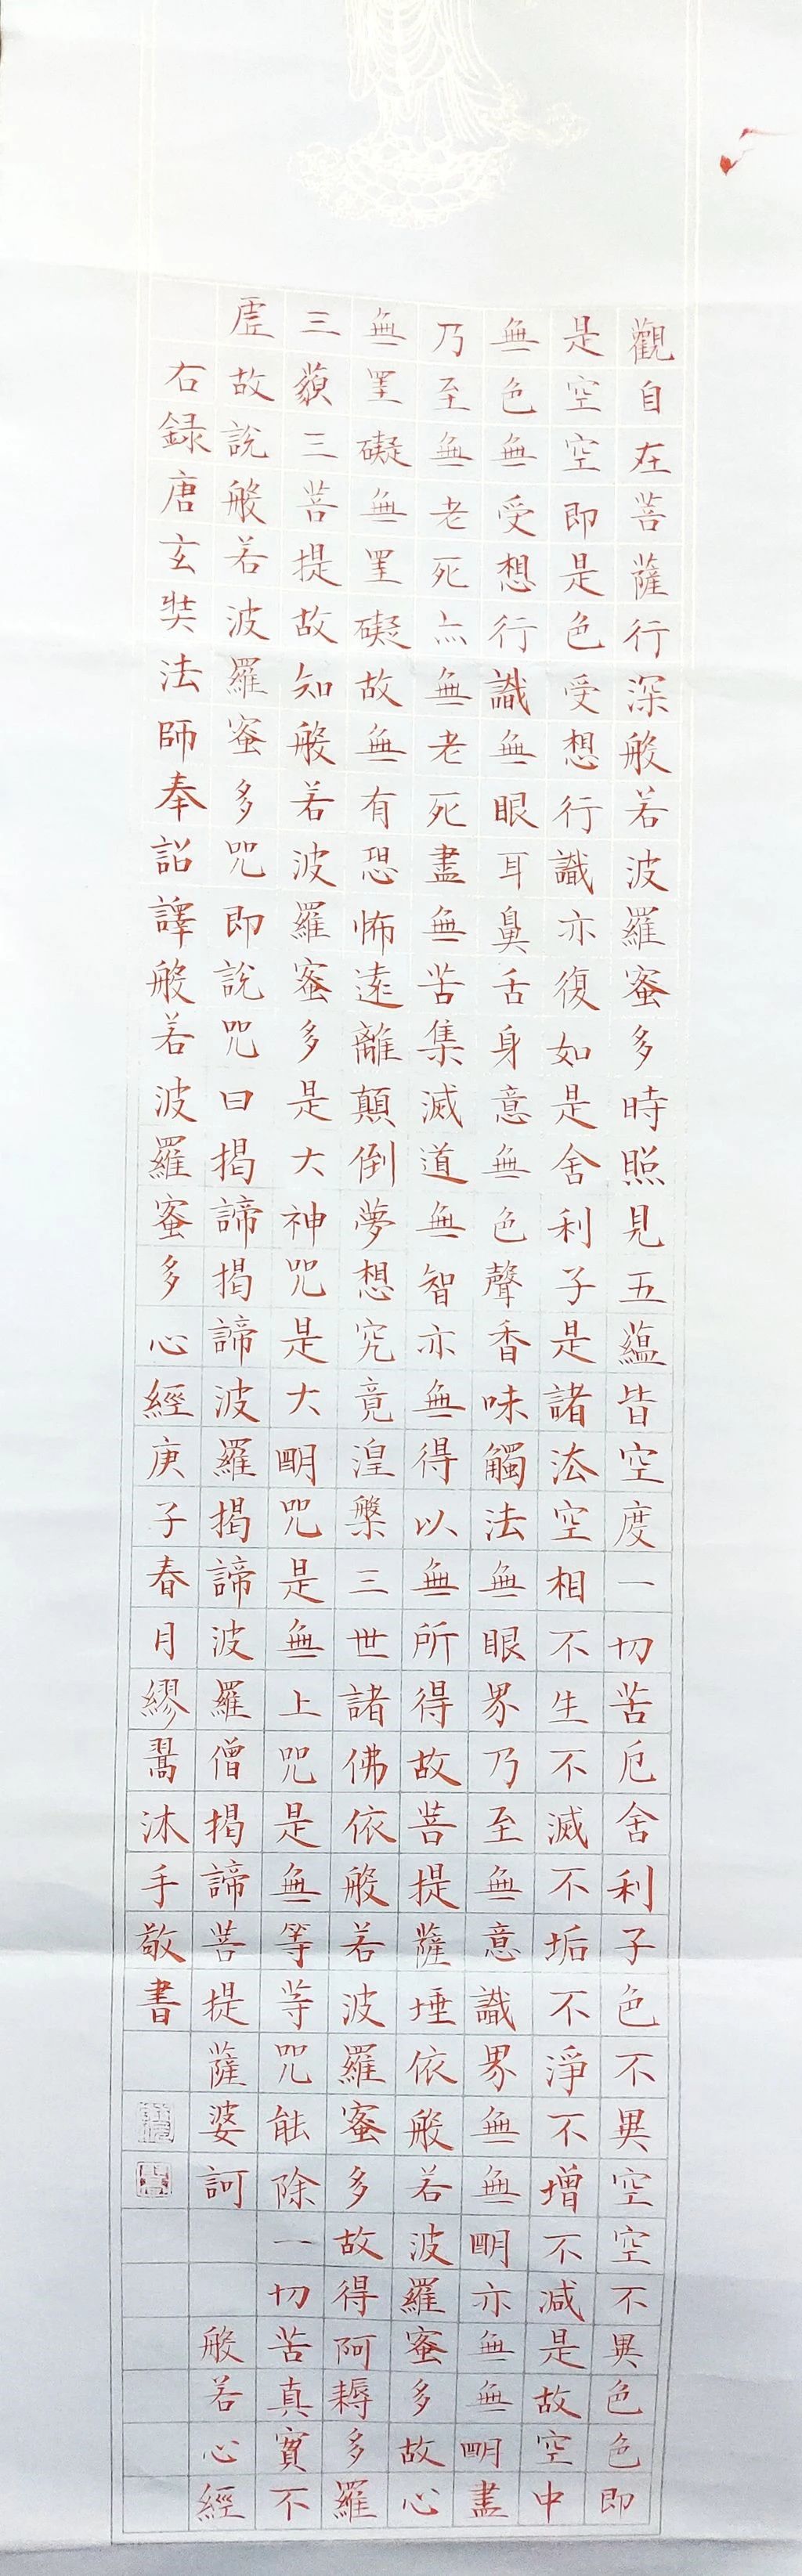 觀自在菩薩行深般若波羅蜜多時照見五蘊皆空度一切苦厄舍利子色不異空空不異色色即
是空空即是色受想行識亦復如是舍利子是諸法空相不生不滅不垢不淨不增不減是故空中
無色無受想行識無眼耳鼻舌身意無色聲香味觸法無眼界乃至無意識界無無明亦無無明盡
乃至無老死亦無老死盡無苦集滅道無智亦無得以無所得故菩提薩埵依般若波羅蜜多故心
無罣礙無罣礙故無有恐怖遠離顛倒夢想究竟涅槃三世諸佛依般若波羅蜜多故得阿耨多羅
三藐三菩提故知般若波羅蜜多是大神咒是大明咒是無上咒是無等等咒能除一切苦真實不
虛故說般若波羅蜜多咒即說咒曰揭諦揭諦波羅揭諦波羅僧揭諦菩提薩婆訶 般若心經
右錄唐玄奘法師奉詔譯般若波羅蜜多心經庚子春月繆翯沐手敬書